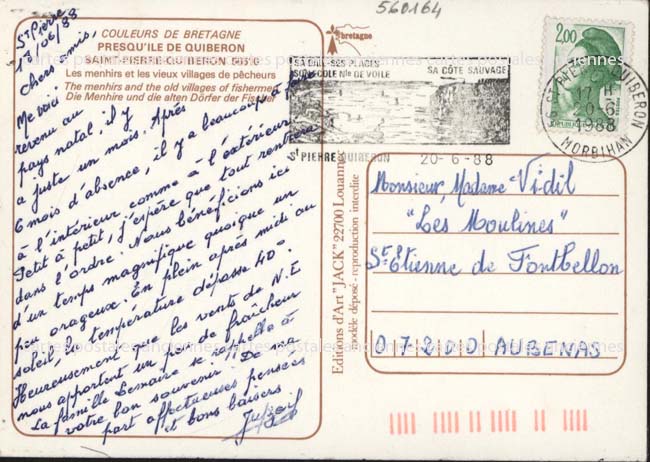 560164
COULEURS DE BRETAGNE
PRESQU'ILE DE QUIBERON
SAINT-PIERRE-QUIBERON 56510
Les menhirs et les vieux villages de pêcheurs
The menhirs and the old villages of fishermen
Die Menhire und die alten Dörfer der Fischer
bretagne
St Pierre
17/06/88
Chers amis,
Me voici
revenu au
pays natal, il y
a juste un mois. Après
6 mois d'absence, il y a beaucoup à faire
à l'intérieur comme à l'extérieur
Petit à petit, j'espère que tout rentrera
dans l'ordre. Nous bénéficions ici
d'un temps magnifique quoique un
peu orageux. En plein après midi au
soleil la température dépasse 40°.
Heureusement que les vents de N.E
nous apportent un peu de fraîcheur
La famille Lemaire se rappelle à
votre bon souvenir. De ma
part affectueuses pensées
et bons baisers
Editions d'Art "JACK" 22700 Louannec
modèle déposé - reproduction interdite
SA BAIE - SES PLAGES
SON ECOLE Nle DE VOILE
SA CÔTE SAUVAGE
St PIERRE QUIBERON
20-6-88
2,00
ST PIERRE QUIBERON
17 H
20-6
1988
MORBIHAN
Monsieur, Madame Vidil
"Les Moulines"
St Etienne de Fontbellon
07200 AUBENAS
cartes postales anciennes cartes postales anciennes cartes postales anciennes